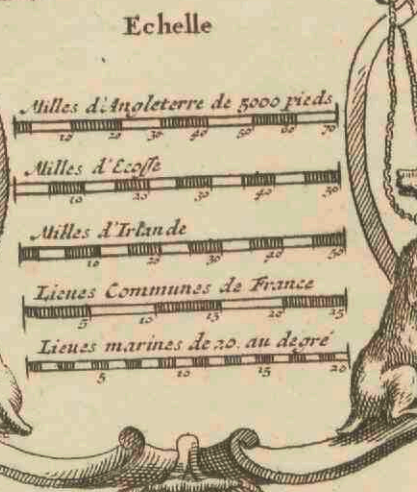 Echelle
Milles d'Angleterre de 5000 pieds
10 20 30 40 50 60 70
Milles d'Ecosse
10 20 30 40 50
Milles d'Irlande
10 20 30 40 50
Lieues Communes de France
5 10 15 20 25
Lieues marines de 20 au degré
5 10 15 20